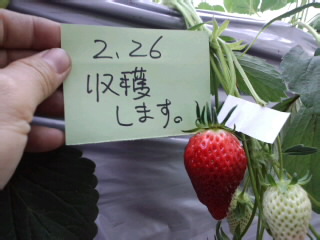 2、26
収穫
します。